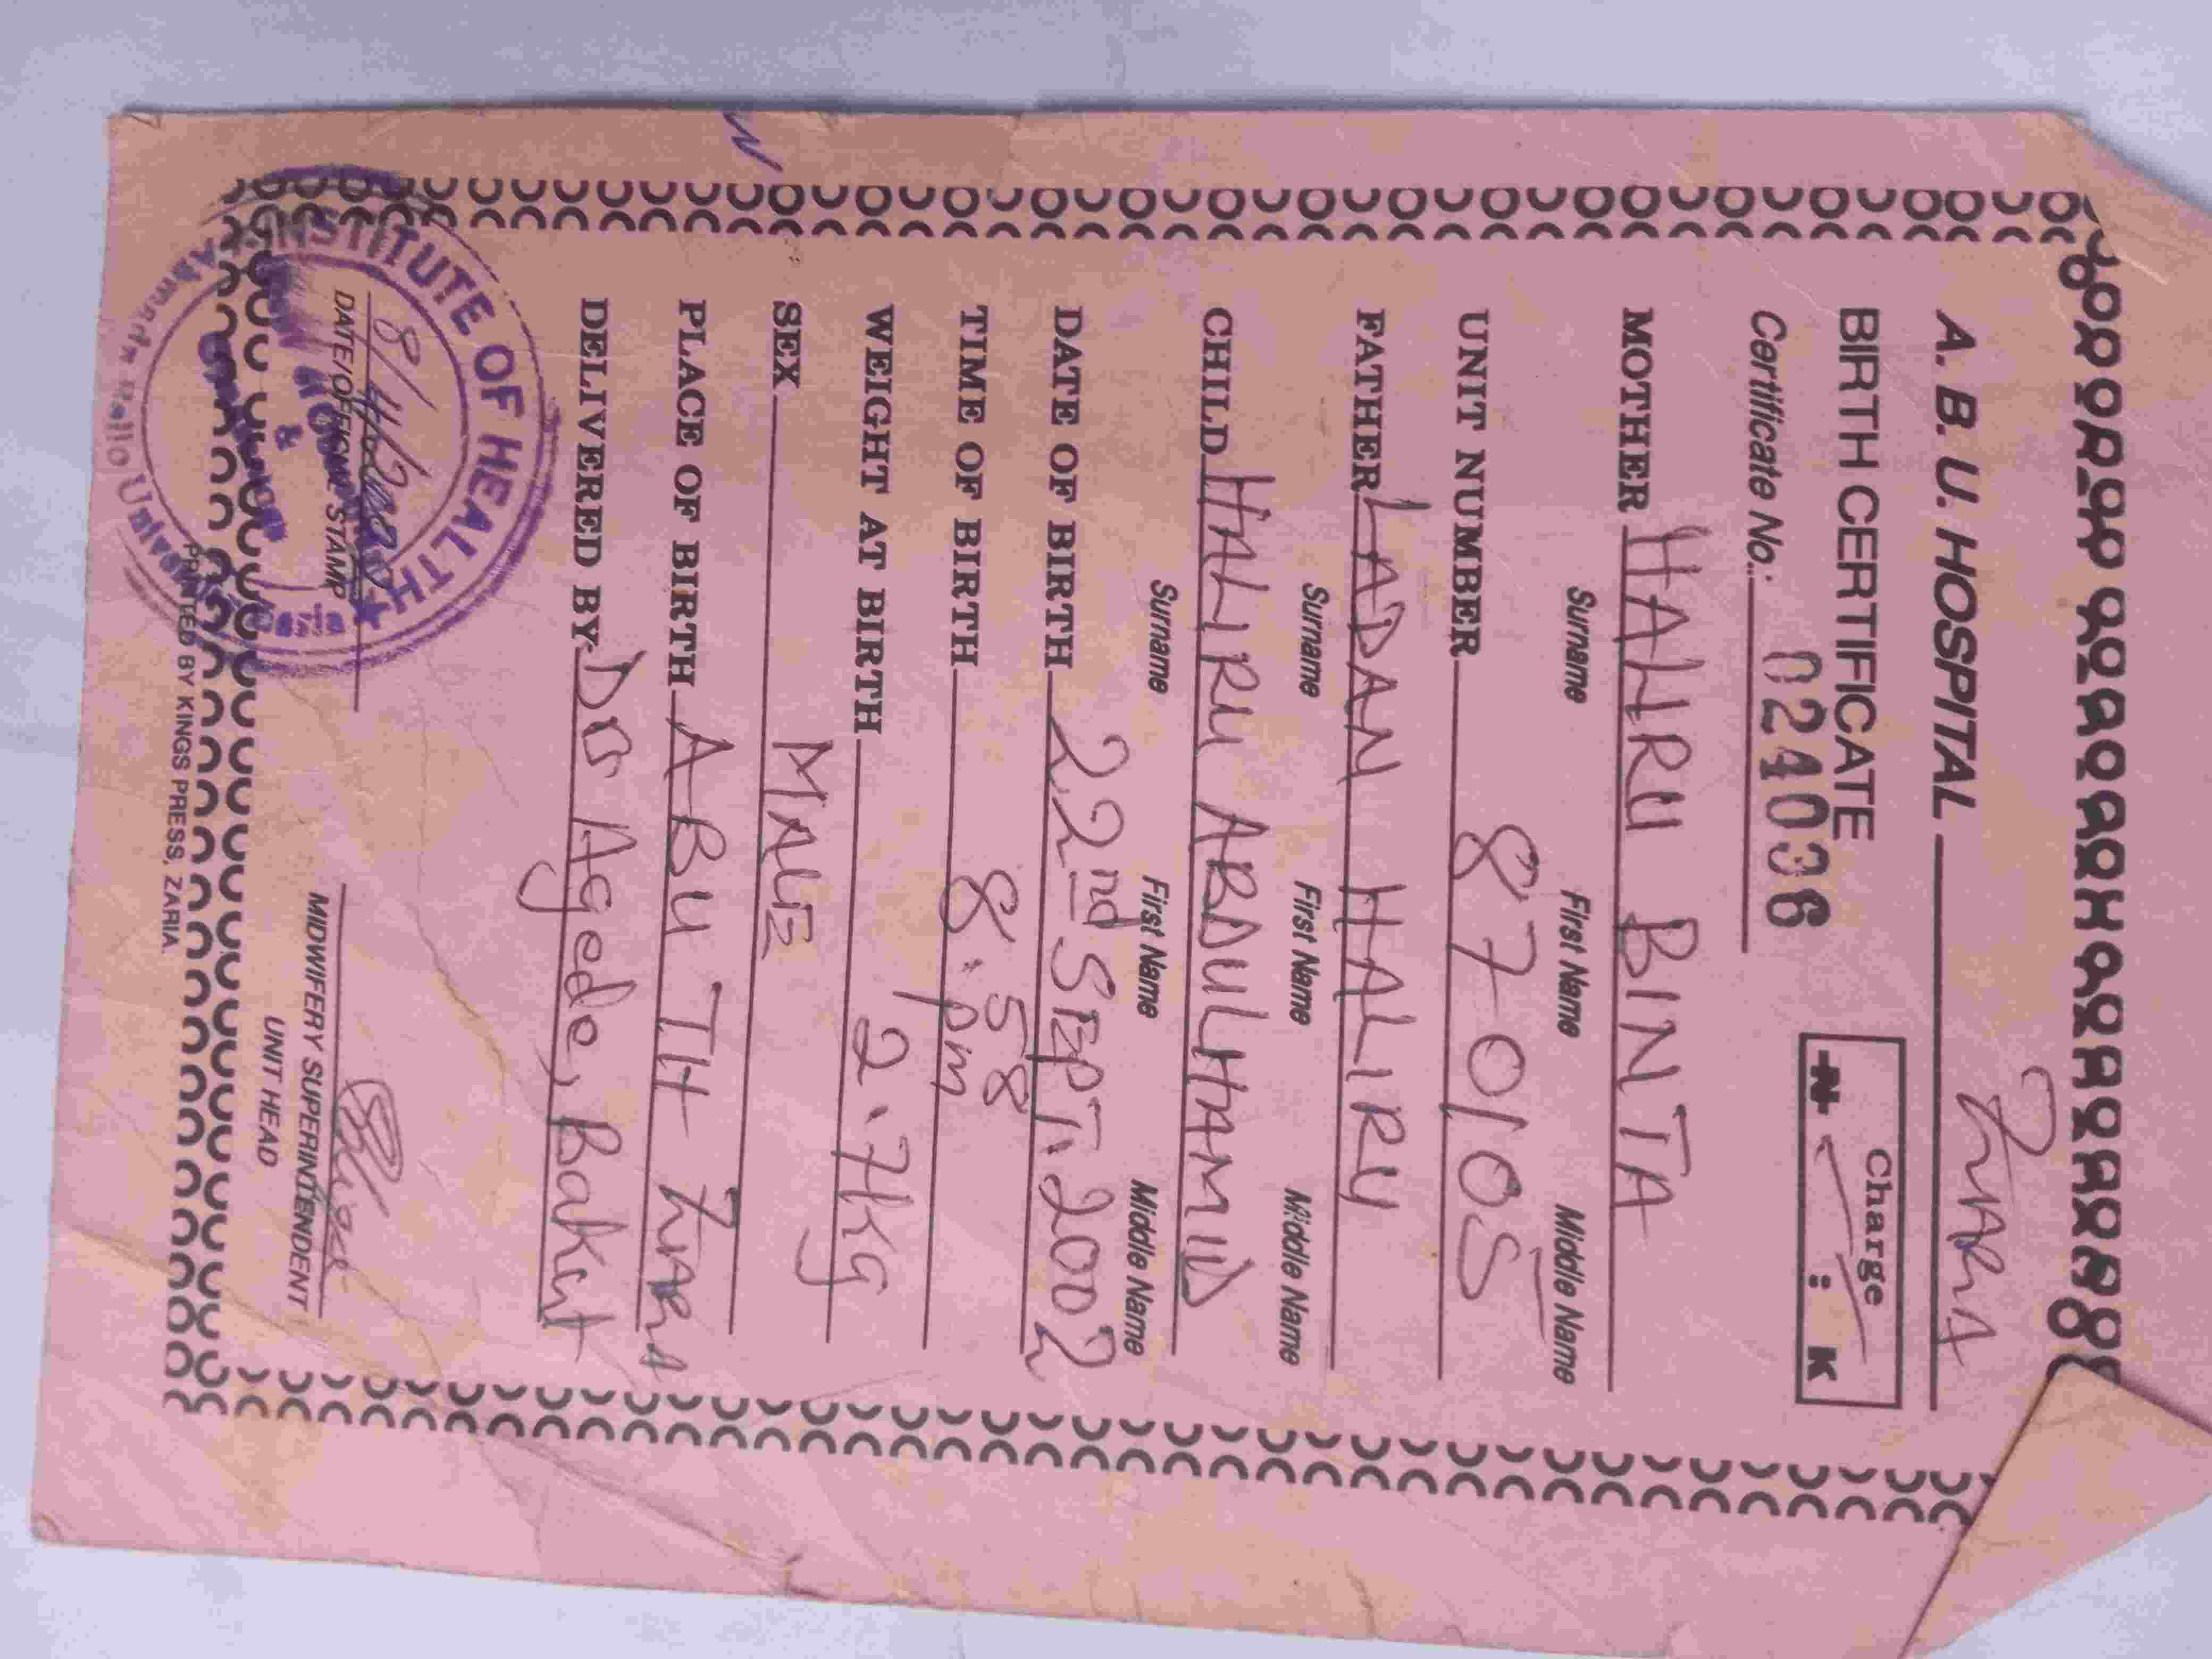 A. B. U. HOSPITAL ZARIA
BIRTH CERTIFICATE
Charge
N : K
Certificate No.: 024036
MOTHER HALIRU BINTA
Surname First Name Middle Name
UNIT NUMBER 870105
FATHER LADAN HALIRU
Surname First Name Middle Name
CHILD HALIRU ABDULHAMID
Surname First Name Middle Name
DATE OF BIRTH 22nd SEPT. 2002
TIME OF BIRTH 8.58 pm
WEIGHT AT BIRTH 2.7kg
SEX MALE
PLACE OF BIRTH ABU TH ZARIA
DELIVERED BY DR Agede, Bakut
DATE/OFFICIAL STAMP
INSTITUTE OF HEALTH
&
Ahmadu Bello University Zaria
MIDWIFERY SUPERINTENDENT
UNIT HEAD
PRINTED BY KINGS PRESS, ZARIA.